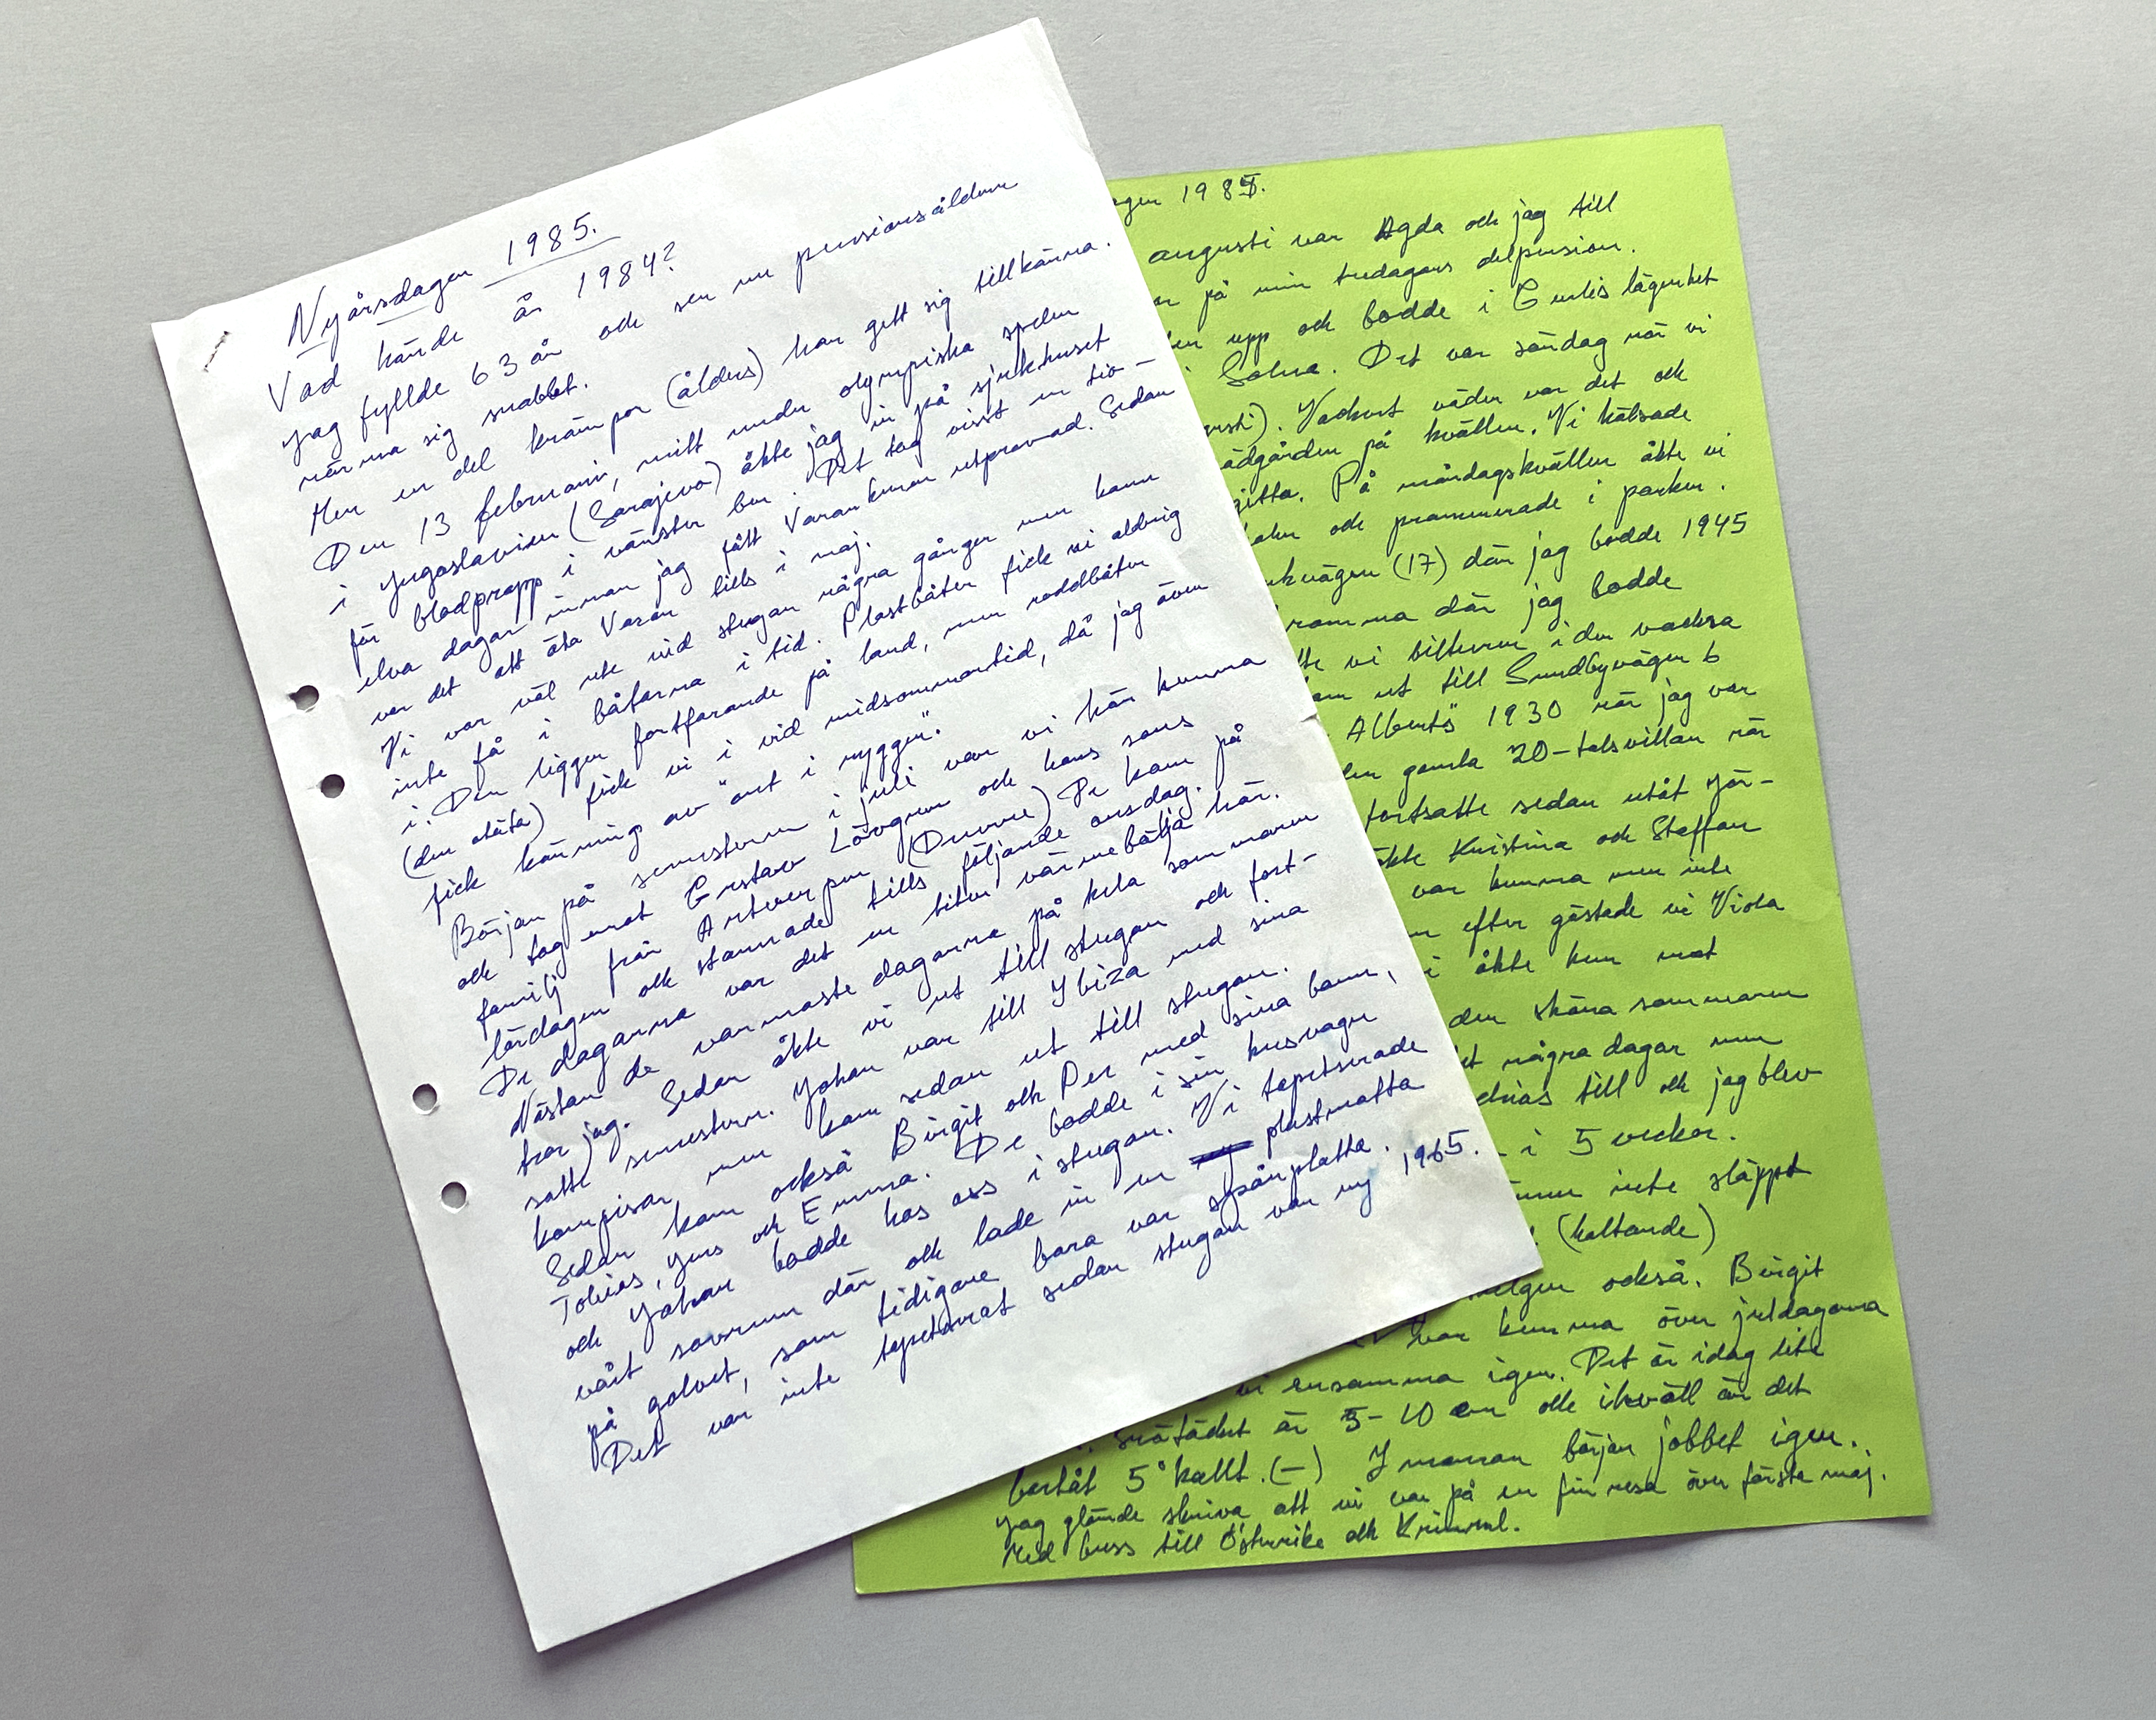 Nyårsdagen 1985.
Vad hände år 1984?
Jag fyllde 63 år och ser nu pensionsåldern
närma sig snabbt.
Men en del krämpor (ålders) har gett sig tillkänna.
Den 13 februari, mitt under olympiska spelen
i Jugoslavien (Sarajevo) åkte jag in på sjukhuset
för blodpropp i vänster ben. Det tog visst en tio-
elva dagar innan jag fått Warankuren utprovad. Sedan
var det att äta Varan tills i maj.
Vi var väl ute vid stugan några gånger men hann
inte få i båtarna i tid. Plastbåten fick vi aldrig
i. Den ligger fortfarande på land, men roddbåten
(den otäta) fick vi i vid midsommartid, då jag även
fick känning av "ont i ryggen".
Början på semestern i juli var vi här hemma
och tog emot Gustav Lövgren och hans sons
familj från Antverpen (Duvve) De kom på
lördagen och stannade tills följande onsdag.
De dagarna var det en liten värmebölja här.
Nästan de varmaste dagarna på hela sommaren
tror jag. Sedan åkte vi ut till stugan och fort-
satte semestern. Johan var till Ybiza med sina
kompisar, men kom sedan ut till stugan.
Sedan kom också Birgit och Per med sina barn,
Tobias, Jens och Emma. De bodde i sin husvagn
och Johan bodde hos oss i stugan. Vi tapetserade
vårt sovrum där och lade in en plastmatta
på golvet, som tidigare bara var spånplatta.
Det var inte tapetserat sedan stugan var ny 1965.
agen 1985.
augusti var Agda och jag till
på min tredagars delpension.
upp och bodde i Gulis lägenhet
i Solna. Det var söndag när vi
usti). Vackert väder var det och
ädgården på kvällen. Vi hälsade
gitta. På måndagskvällen åkte vi
och promenerade i parken.
vägen (17) där jag bodde 1945
romma där jag bodde
vi bilturen i den vackra
ut till Sundbyvägen 6
Alberts" 1930 när jag var
den gamla 20-talsvillan när
fortsatte sedan utåt Jär-
åkte Kristina och Staffan
var hemma men inte
efter gästade vi Viola
i åkte hem mot
den sköna sommaren
et några dagar men
till och jag blev
i 5 veckor.
inte släppt
(haltande)
helgen också. Birgit
var hemma över juldagarna
vi ensamma igen. Det är idag lite
Snötäcket är 5-10 cm och ikväll är det
bortåt 5° kallt. (-) I morgon börjar jobbet igen.
Jag glömde skriva att vi var på en fin resa över första maj.
Med buss till Österrike och Krimml.